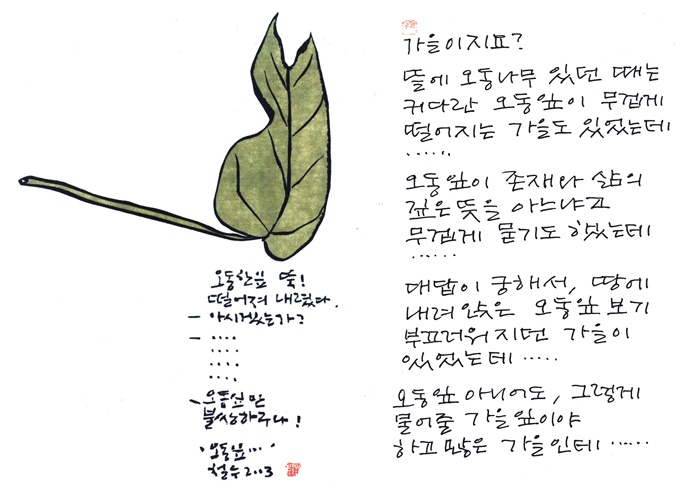 오동한잎 뚝!
떨어져 내렸다.
— 아시겠는가?
— ....
....
....
....
— 오동잎만
불쌍하구나!
"오동잎..."
철수 2003
가을이지요?
뜰에 오동나무 있던 때는
커다란 오동잎이 무겁게
떨어지는 가을도 있었는데
.....
오동잎이 존재와 삶의
깊은 뜻을 아느냐고
무겁게 묻기도 했었는데
......
대답이 궁해서, 땅에
내려앉은 오동잎 보기
부끄러워지던 가을이
있었는데 .....
오동잎 아니어도, 그렇게
물어줄 가을잎이야
하고많은 가을인데 ......